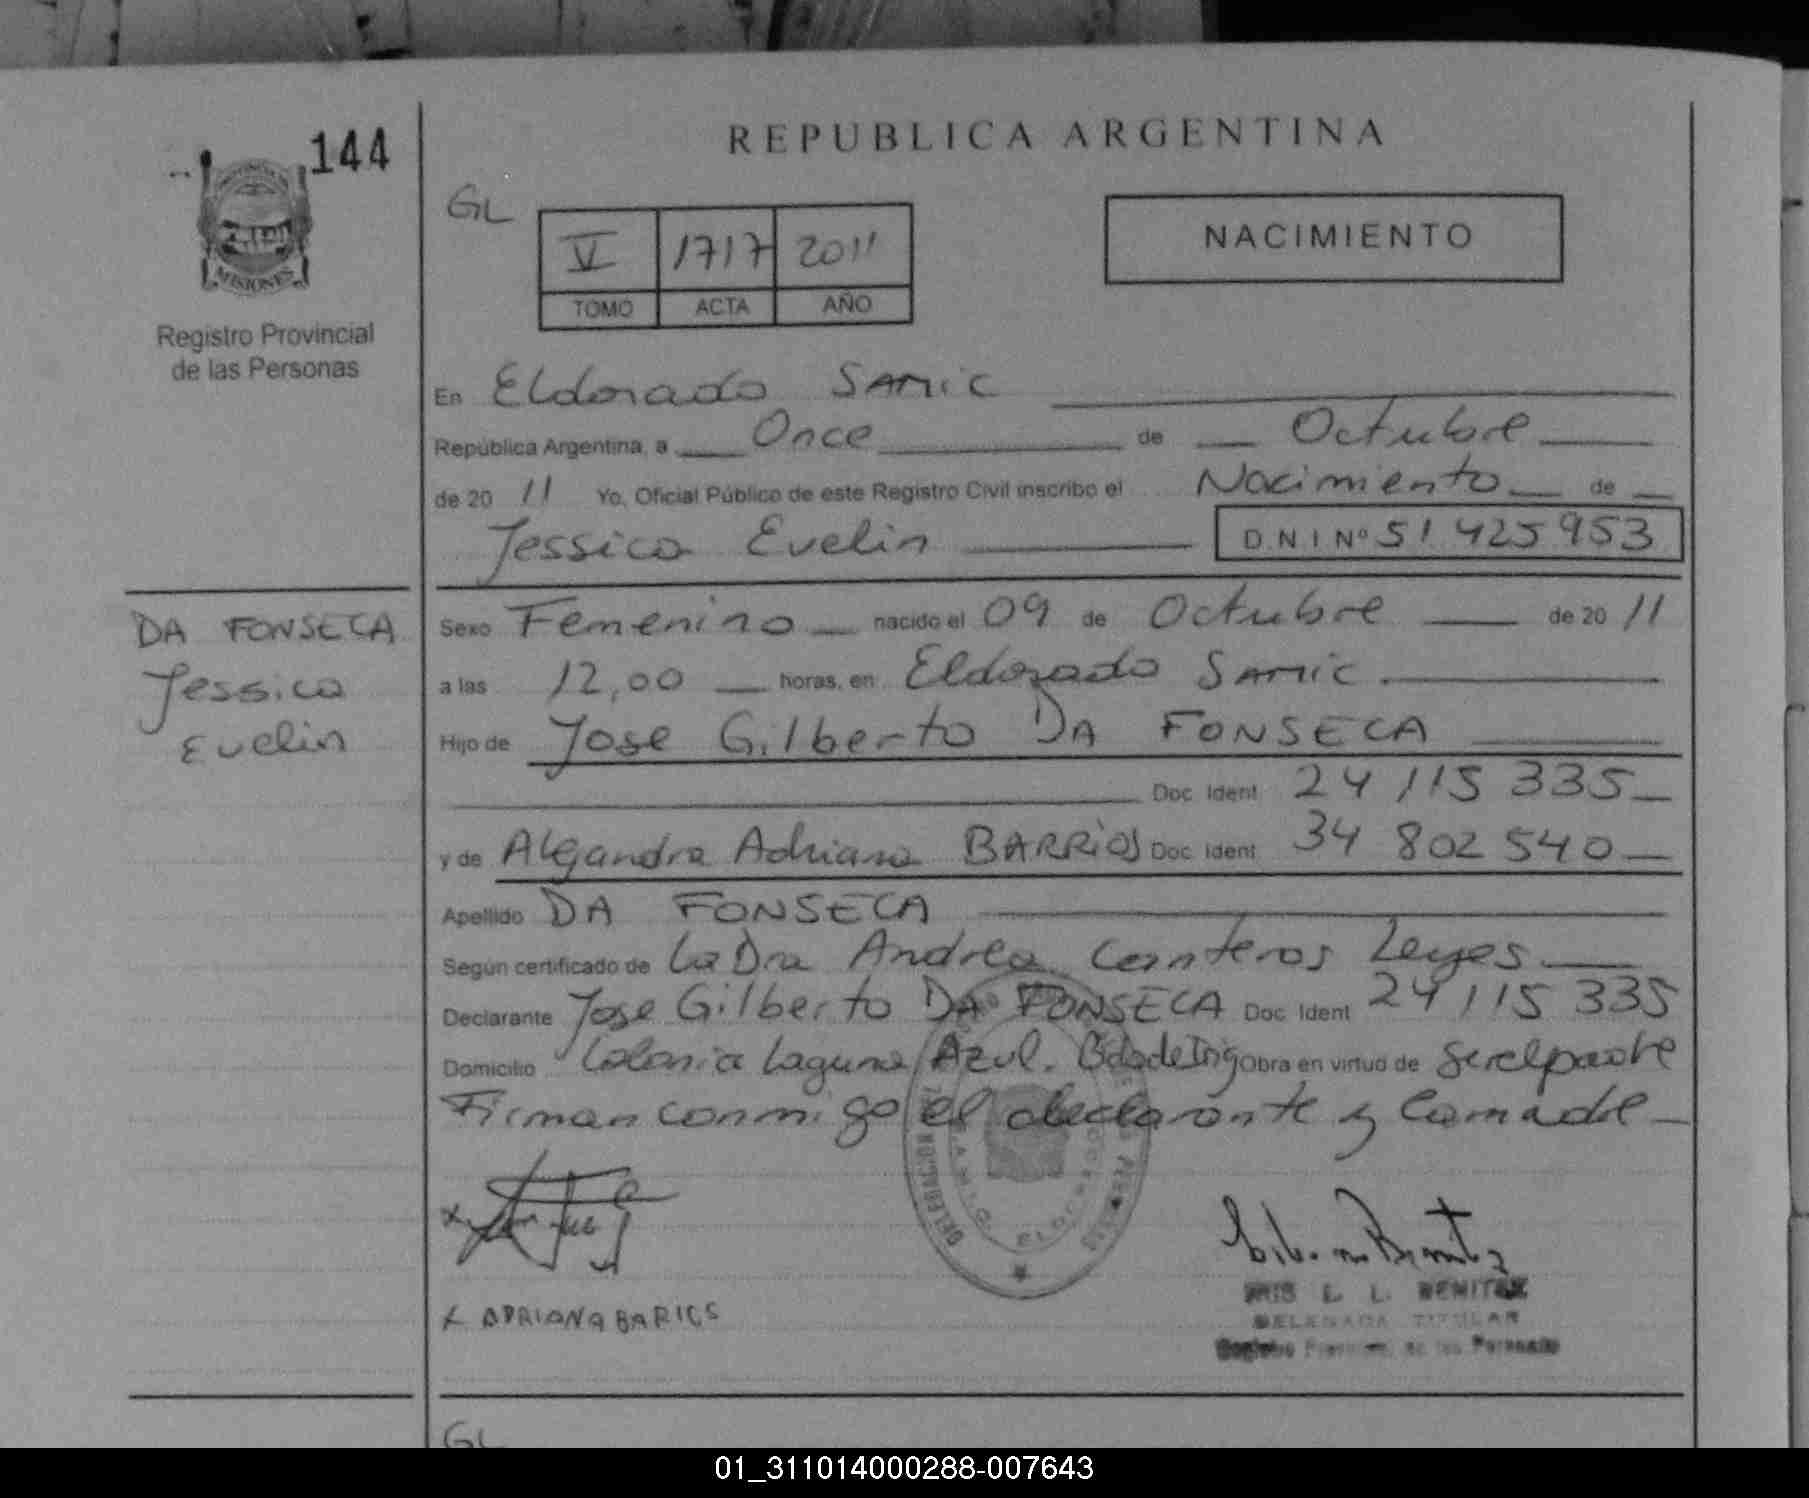 144
MISIONES
Registro Provincial
de las Personas
REPUBLICA ARGENTINA
GL
V 1717 2011
TOMO ACTA AÑO
NACIMIENTO
En Eldorado SAMIC
República Argentina, a Once de Octubre
de 20 11 Yo, Oficial Público de este Registro Civil inscribo el Nacimiento de
Jessica Evelin D.N.I Nº 51 425 953
DA FONSECA
Jessica
Evelin
Sexo Femenino nacido el 09 de Octubre de 20 11
a las 12,00 horas, en Eldorado SAMIC
Hijo de Jose Gilberto DA FONSECA
Doc. Ident 24 115 335
y de Alejandra Adriana BARRIOS Doc. Ident 34 802 540
Apellido DA FONSECA
Según certificado de La Dra Andrea Canteros Leyes
Declarante Jose Gilberto DA FONSECA Doc. Ident 24 115 335
Domicilio Colonia Laguna Azul. Obra en virtud de ser el padre
Firman conmigo el declarante y la madre
x ADRIANA BARIOS
L. L. BENITEZ
DELEGADA TITULAR
Registro Provincial de las Personas
GL
01_311014000288-007643